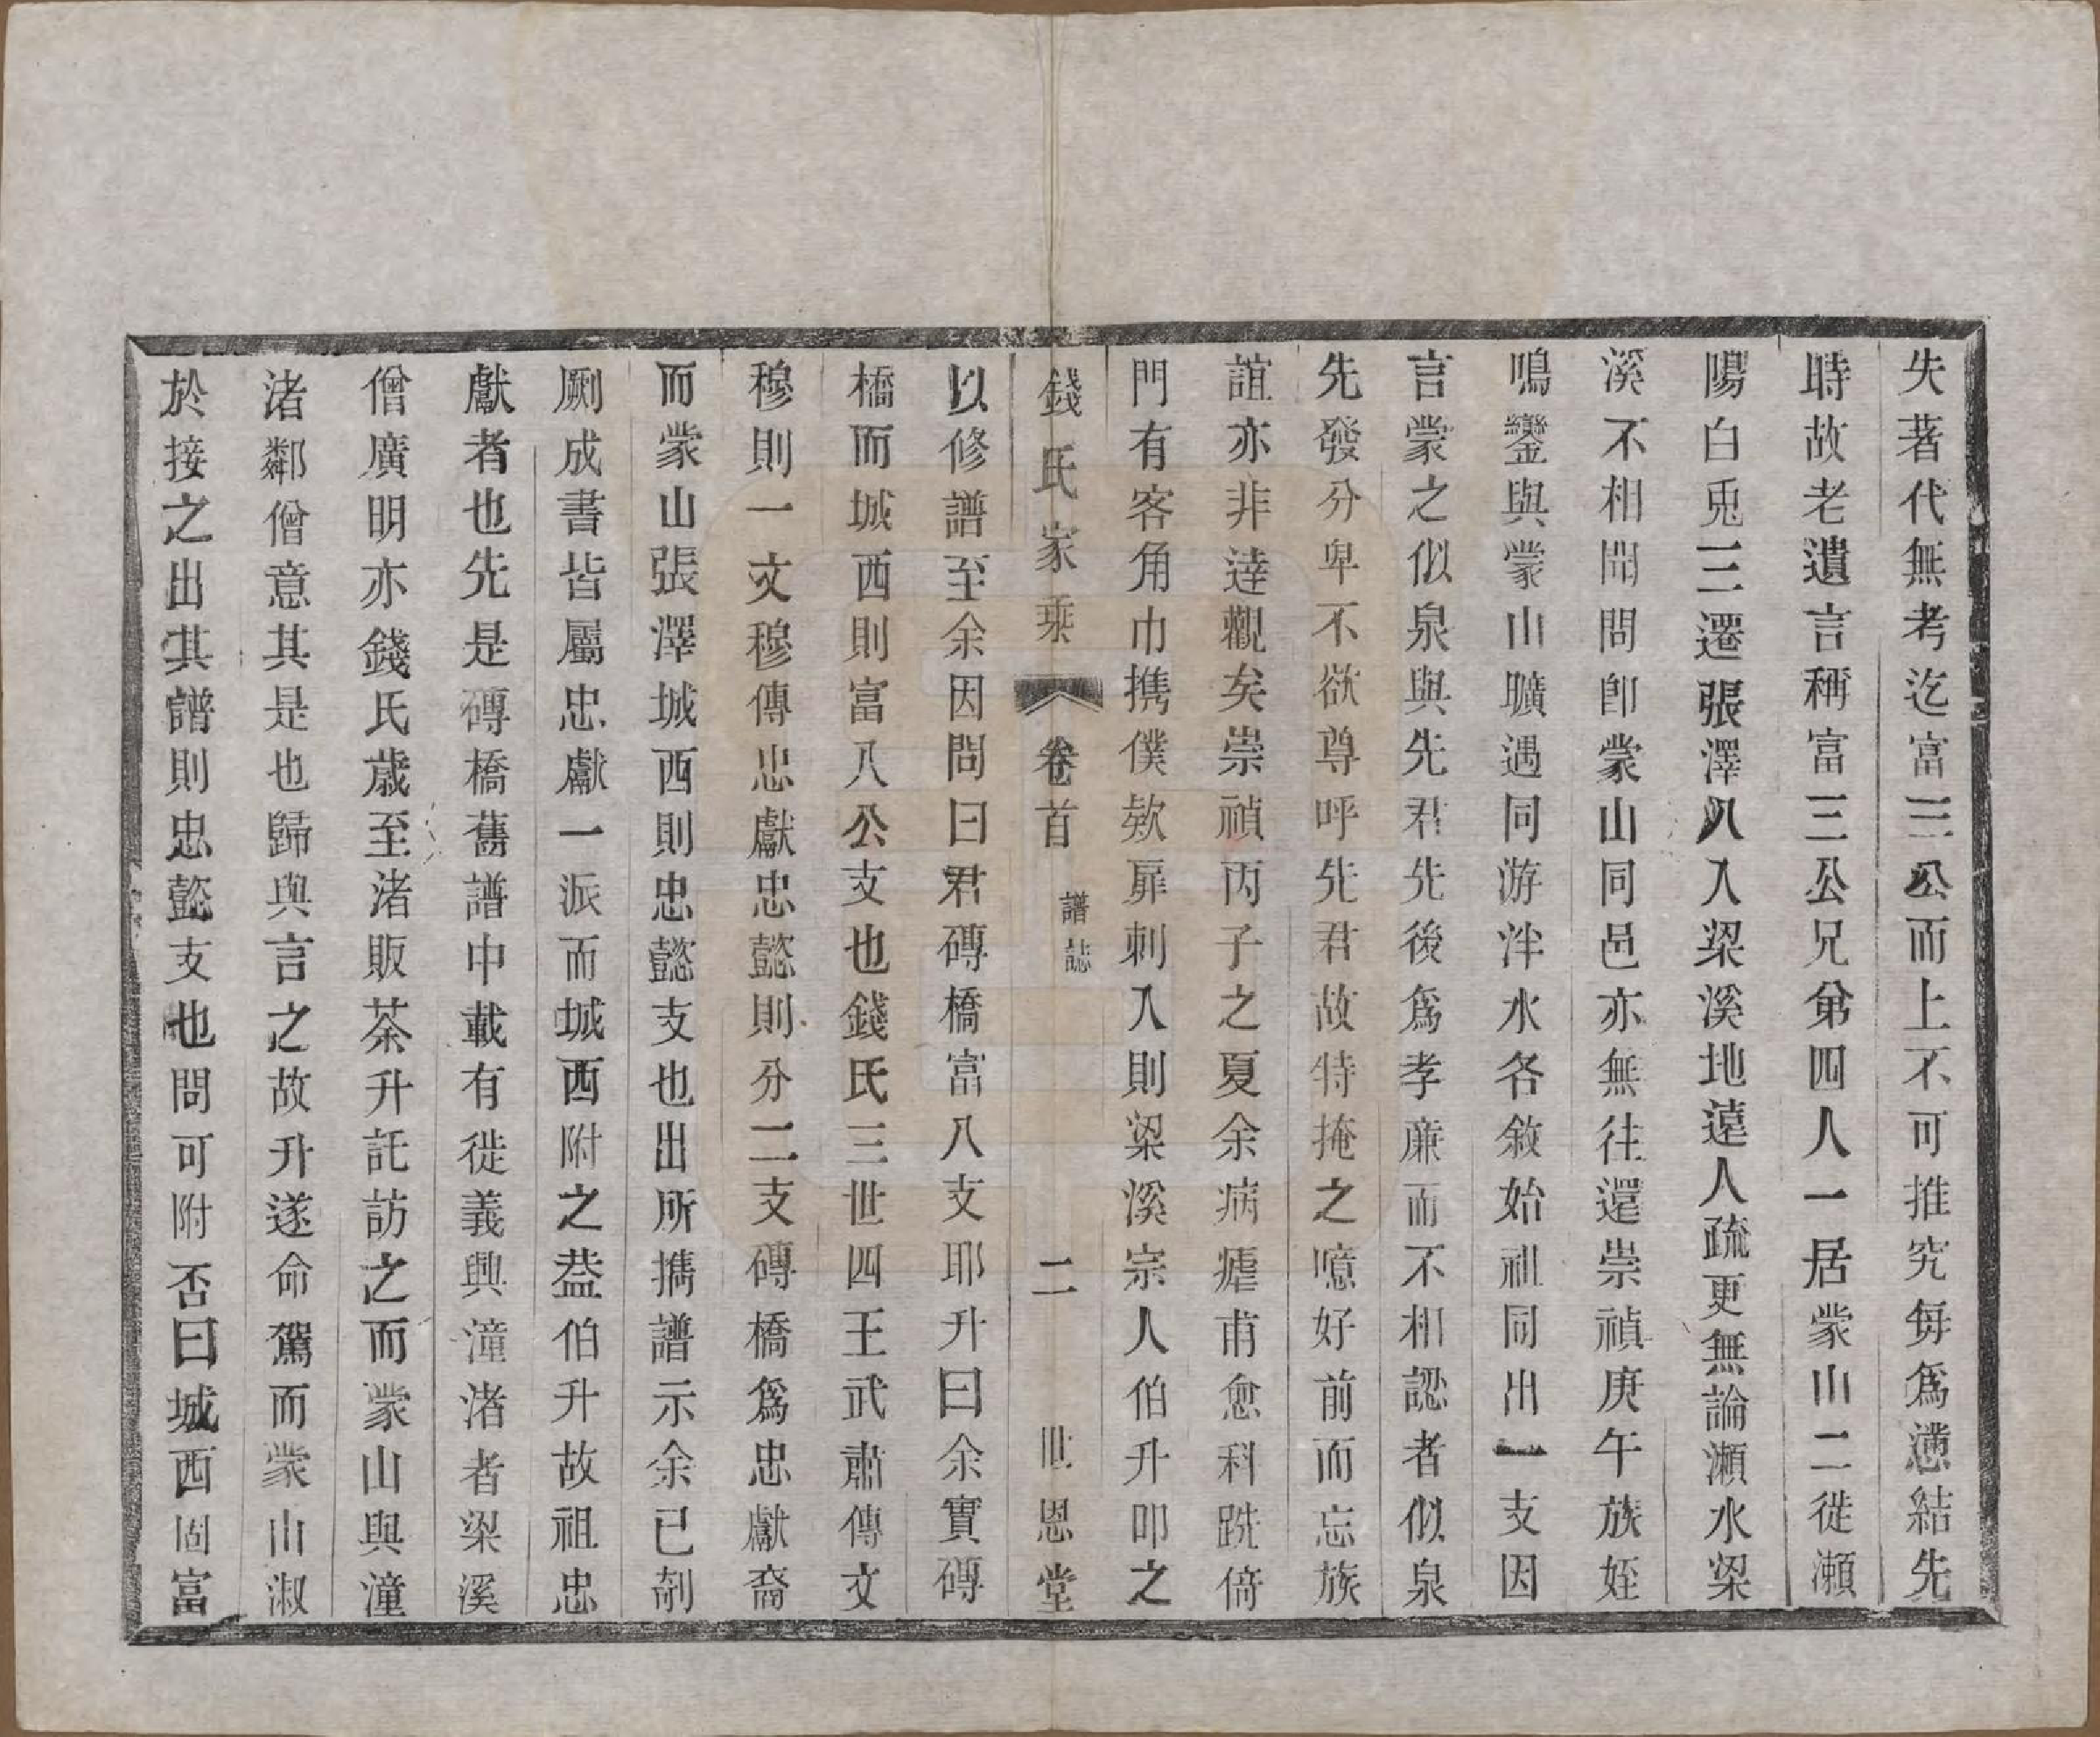 失著代無考迄富三公而上不可推究每爲懣結先
時故老遺言稱富三公兄弟四人一居蒙山二徙瀨
陽白兎三遷張澤八入梁溪地遠人疏更無論瀨水梁
溪不相聞問卽蒙山同邑亦無往還崇禎庚午族姪
鳴鑾與蒙山曠遇同游泮水各敘始祖同出一支因
言蒙之似泉與先君先後爲孝廉而不相認者似泉
先發分卑不欲尊呼先君故特掩之噫好前而忘族
誼亦非達觀矣崇禎丙子之夏余病瘧甫愈科跣倚
門有客角巾携僕欵扉刺入則梁溪宗人伯升叩之
錢氏家乘 卷首 譜誌 二 世恩堂
以修譜至余因問曰君磚橋富八支耶升曰余實磚
橋而城西則富八公支也錢氏三世四王武肅傳文
穆則一文穆傳忠獻忠懿則分二支磚橋爲忠獻裔
而蒙山張澤城西則忠懿支也出所擕譜示余已剞
劂成書皆屬忠獻一派而城西附之葢伯升故祖忠
獻者也先是磚橋舊譜中載有徙義興潼渚者梁溪
僧廣明亦錢氏歲至渚販茶升託訪之而蒙山與潼
渚鄰僧意其是也歸與言之故升遂命駕而蒙山淑
於接之出其譜則忠懿支也問可附否曰城西固富